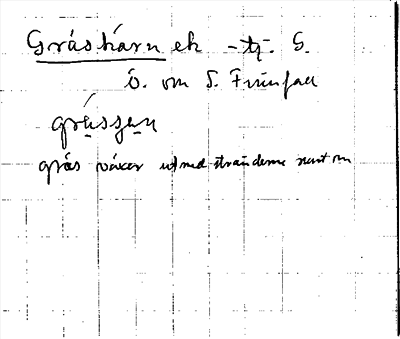 Gräskärn ek - tj. S.
Ö. om S. Finnfall
gräsʒɛn
gräs växer utmed stränderna runt om